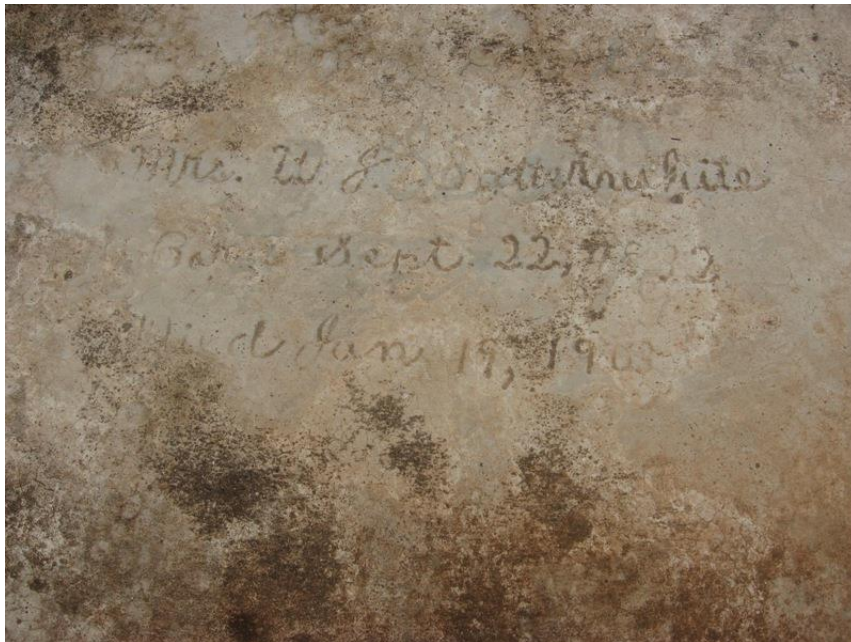 Mrs. W. J. Satterwhite
Born Sept. 22,
Died Jan. 19,